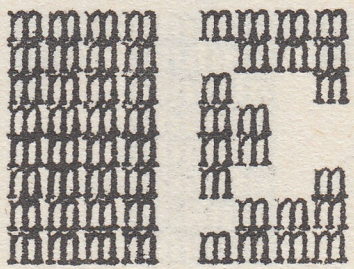 mmmm mmmm
mmmm  mmm
mmmm m  m
mmmm mm
mmmm mm
mmmm m  m
mmmm  mmm
mmmm mmmm